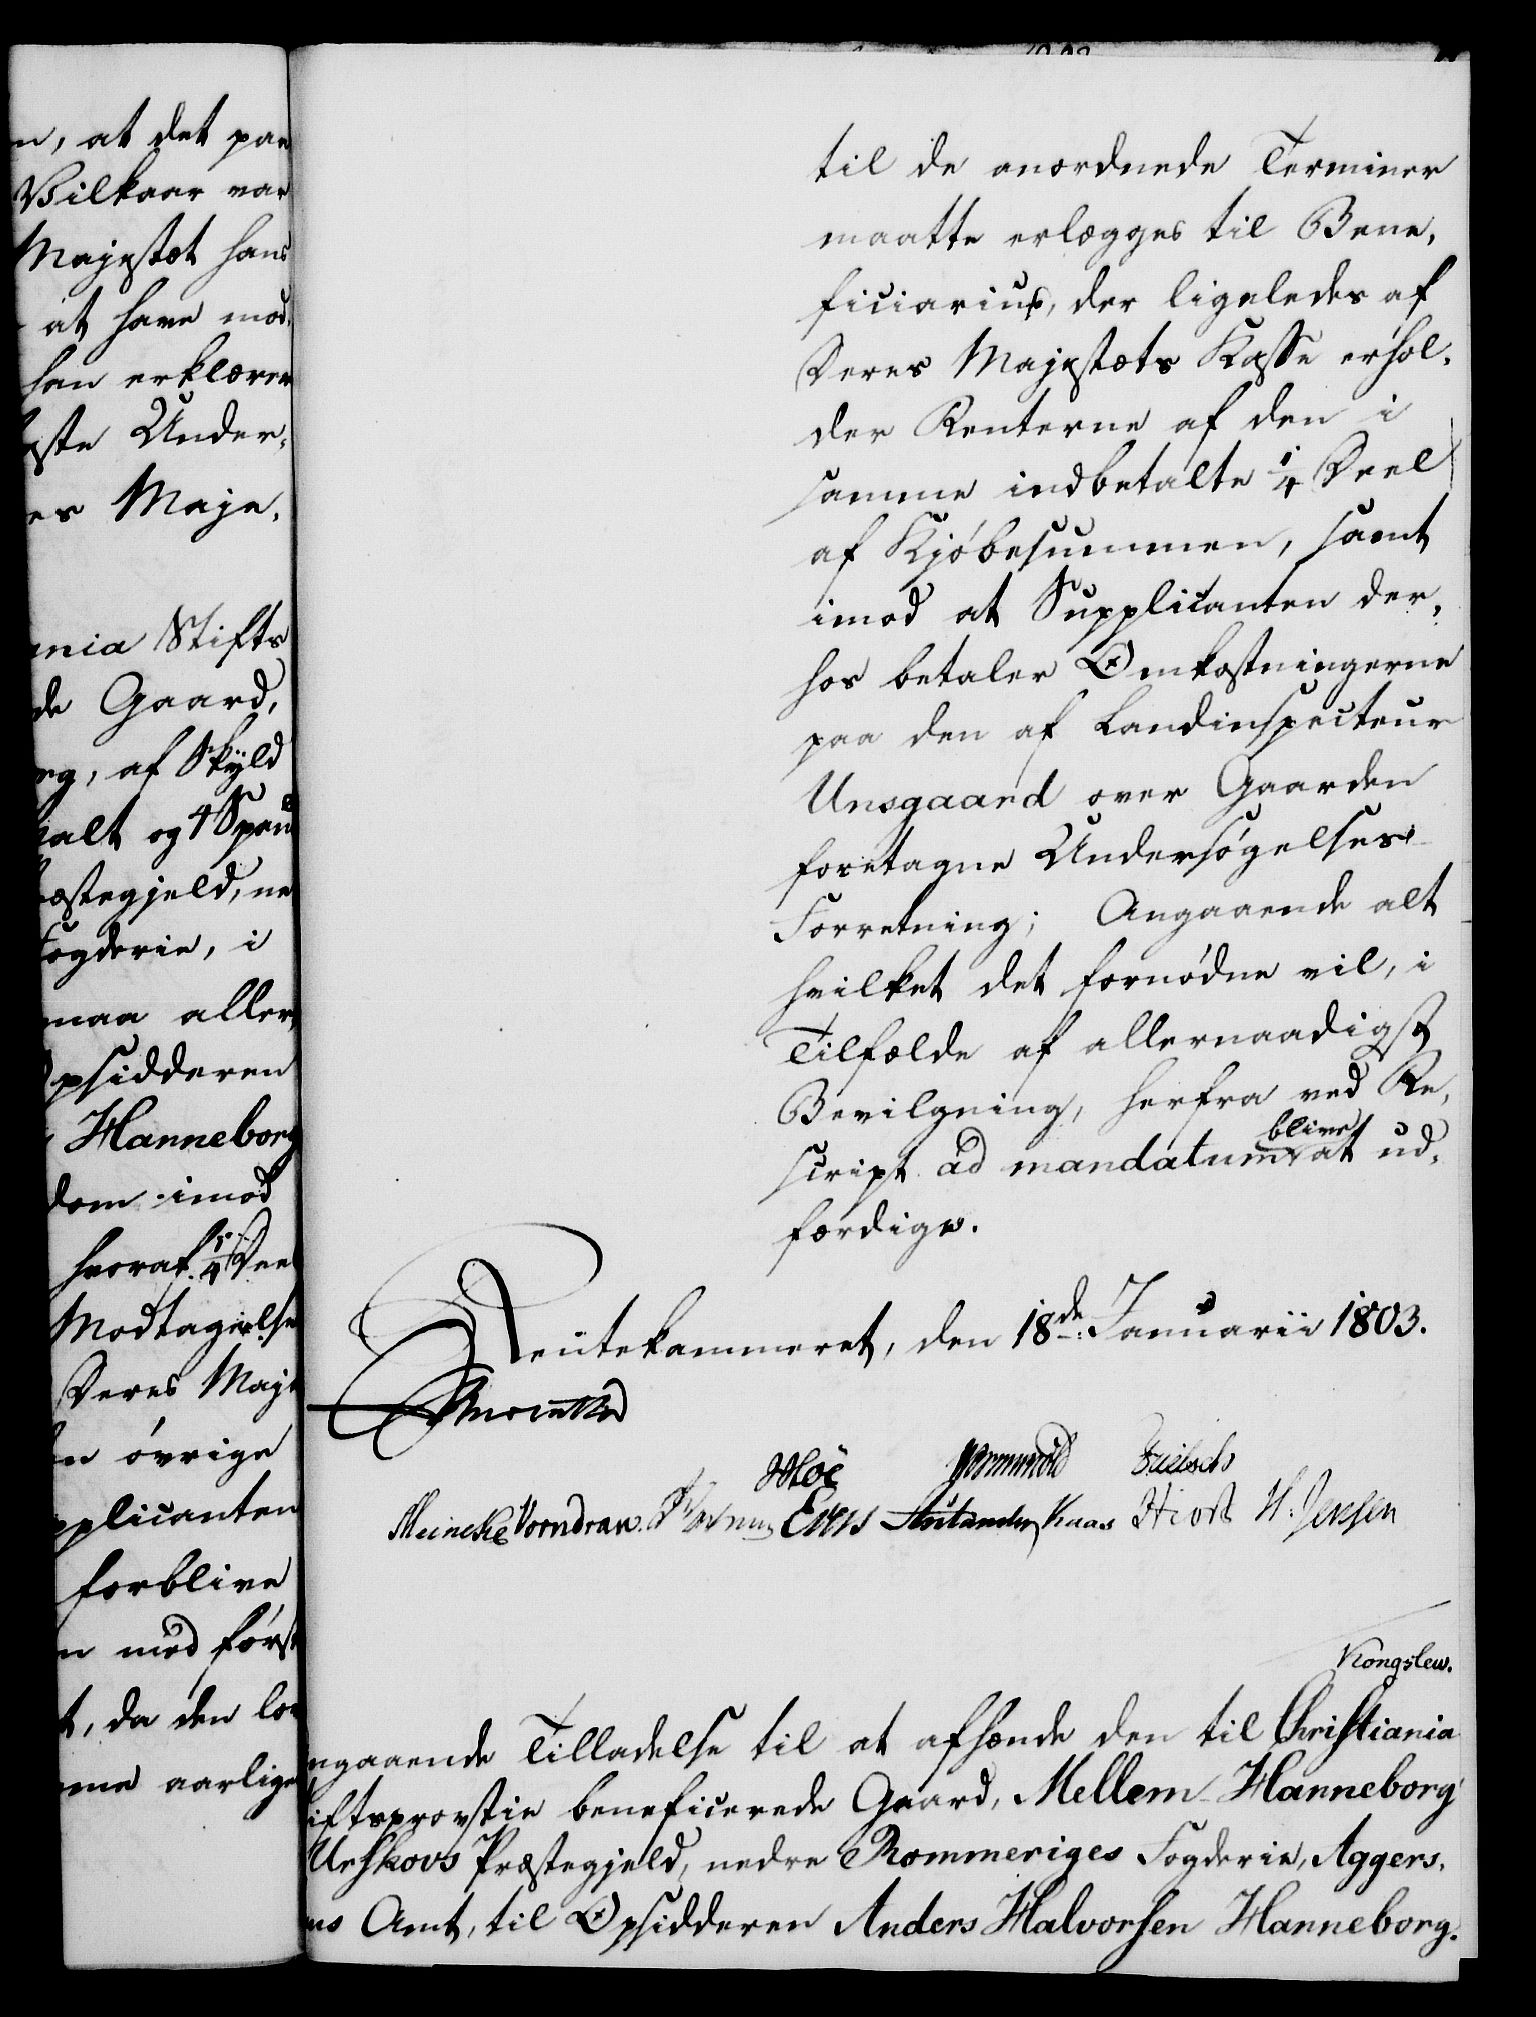 n, at det paa
Vilkaar var
Majestæt hans
at have mod,
han erklærer
ste Under,
es Maje,
ania Stifts
de Gaard,
rg, af Skyld
salt og 4 Span
æstegjeld, ne
Fogderie, i
maa aller,
psidderen
Hanneborg
dom imod
hvoraf 1/4 Deel
Modtagelse
Deres Maje
n øvrige
pplicanten
forblive
n med först
t, da den lov
me aarlige
til de anordnede Terminer
maatte erlægges til Bene,
ficiarius, der ligeledes af
Deres Majestæts Kasse erhol,
der Renterne af den i
samme indbetalte 1/4 Deel
af Kjøbesummen, samt
imod at Supplicanten der,
hos betaler Omkostningerne
paa den af Landinspecteur
Unsgaard over Gaarden
foretagne Undersøgelses-
Forretning; Angaaende alt
hvilket det fornødne vil, i
Tilfælde af allernaadigst
Bevilgning, herfra ved Re,
script ad mandatum blive at ud,
færdige.
Rentekammeret, den 18de Januarii 1803.
Moe
Meincke Vorndran Evers Knas Hiort H. Jensen
Kongslew.
ngaaende Tilladelse til at afhænde den til Christiania
iftsprovstie beneficerede Gaard, Mellem-Hanneborg
Urskovs Præstegjeld, nedre Rommeriges Fogderie, Aggers,
us Amt, til Opsidderen Anders Halvorsen Hanneborg.